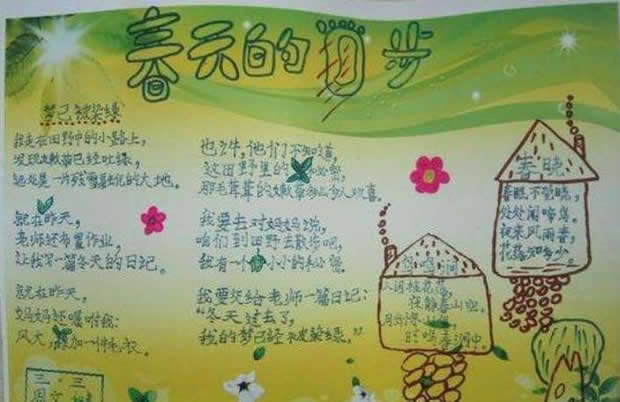 春天的脚步
梦已被染绿
我走在田野中的小路上，
发现嫩苗已经吐绿，
远处是一片残雪融化的大地。
就在昨天，
老师还布置作业，
让我写一篇冬天的日记。
就在昨天，
妈妈还嘱咐我：
风大，添加一件毛衣。
也许，他们不知道，
这田野里的秘密，
那毛茸茸的嫩草多么令人欢喜。
我要去对妈妈说，
咱们到田野去散步吧，
我有一个小小的秘密。
我要交给老师一篇日记：
“冬天过去了，
我的梦已经被染绿。”
鸟鸣涧
人闲桂花落，
夜静春山空。
月出惊山鸟，
时鸣春涧中。
春晓
春眠不觉晓，
处处闻啼鸟。
夜来风雨声，
花落知多少。
三．三